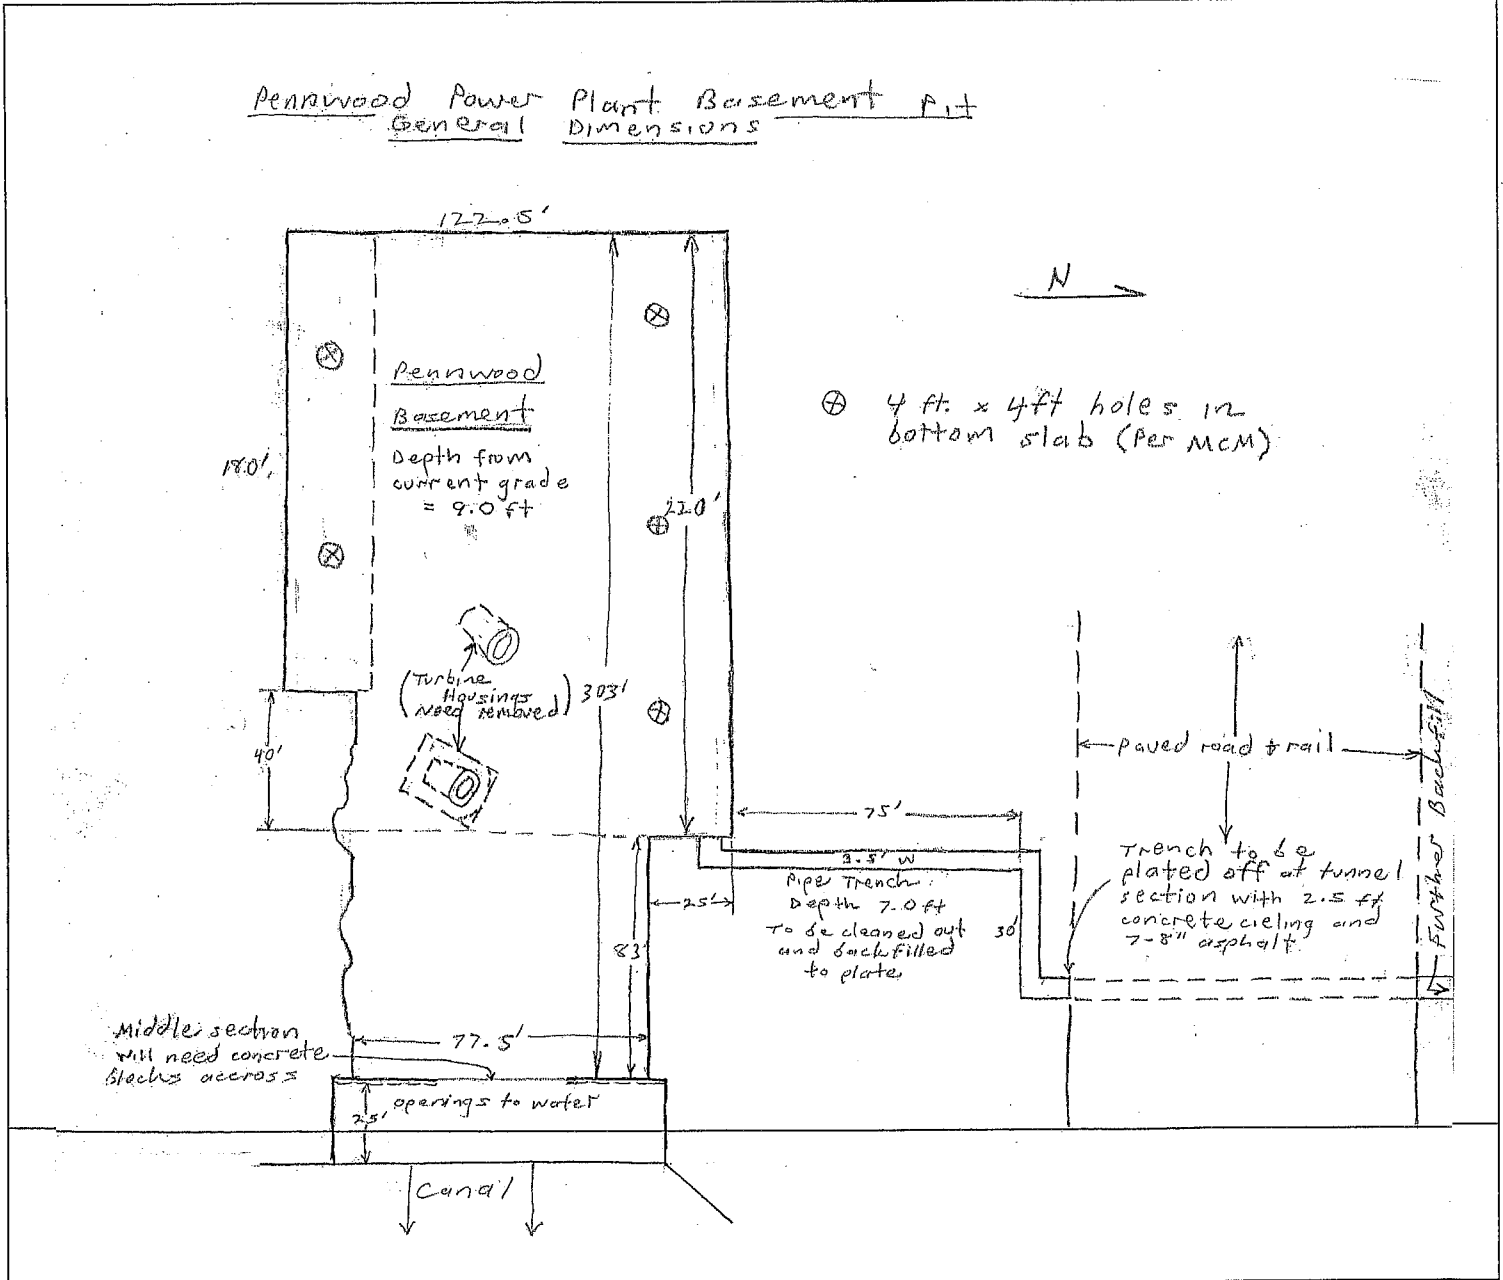 Pennwood Power Plant Basement Pit
General Dimensions
122.5'
N
Pennwood
Basement
Depth from
current grade
= 9.0 ft
180'
220'
4 ft. x 4ft holes in
bottom slab (Per McM)
(Turbine
Housings
Need removed)
303'
40'
paved road + rail
Further Backfill
75'
3.5' W
Pipe Trench
Depth 7.0 ft
To be cleaned out
and backfilled
to plate
30'
25'
83'
Trench to be
plated off at tunnel
section with 2.5 ft
concrete cieling and
7-8" asphalt
Middle section
will need concrete
Blocks accross
77.5'
openings to water
25'
Canal